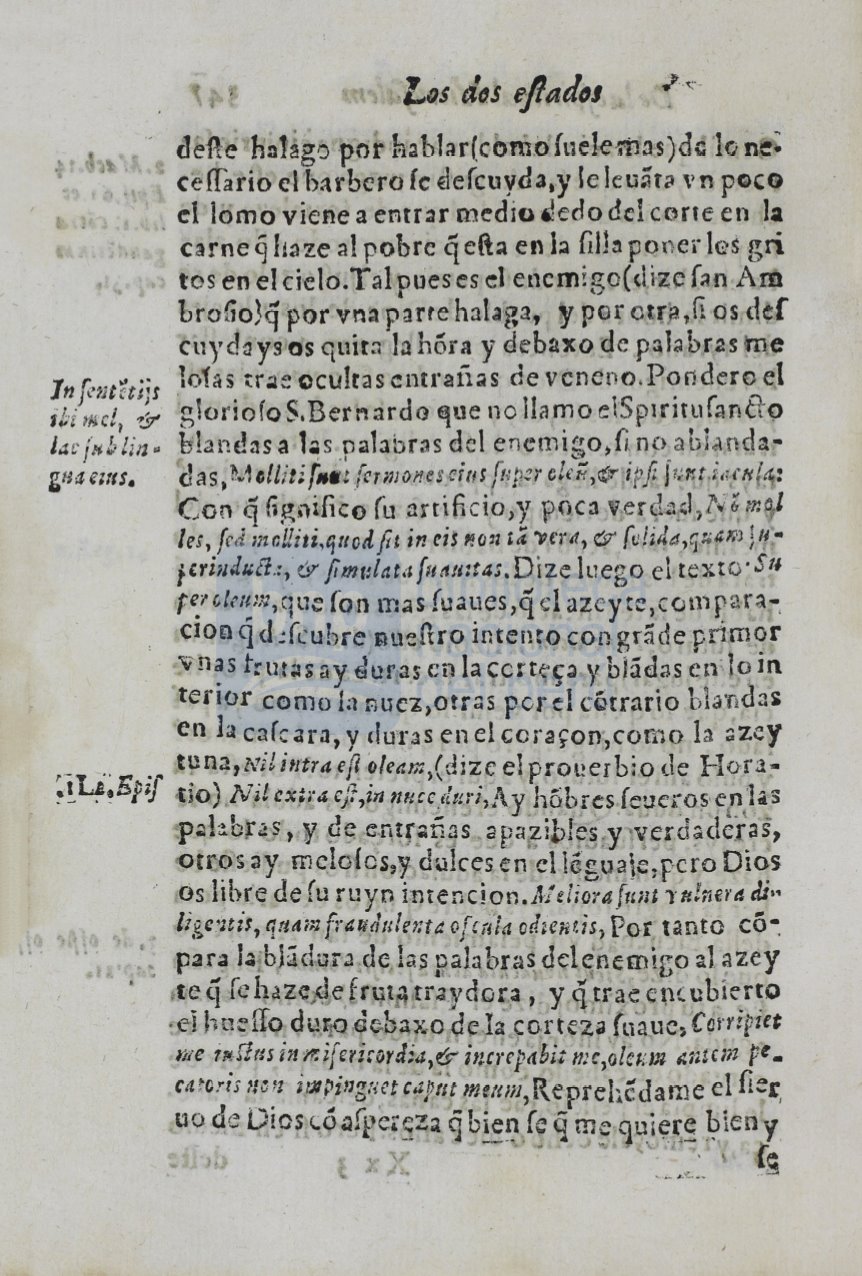 Los dos eſtados
deſte halago por hablar(como ſuele mas)de lo ne-
ceſſario el barbero ſe deſcuyda,y le leuãta vn poco
el lomo viene a entrar medio dedo del corte en la
carne q̃ haze al pobre q̃ eſta en la ſilla poner los gri
tos en el cielo.Tal pues es el enemigo(dize ſan Am
broſio)q̃ por vna parte halaga, y por otra,ſi os deſ
cuydays os quita la hõra y debaxo de palabras me
loſas trae ocultas entrañas de veneno.Pondero el
glorioſo S.Bernardo que no llamo el Spiritu ſancto
blandas a las palabras del enemigo,ſi no ablanda-
das,Molliti ſunt ſermones eius ſuper oleũ,& ipſi ſunt iacula:
Con q̃ ſignifico ſu artificio,y poca verdad,Nõ mol
les, ſed molliti,quod ſit in eis non tã vera, & ſolida,quam ſu-
perinducta, & ſimulata ſuauitas.Dize luego el texto.Su
per oleum,que ſon mas ſuaues,q̃ el azeyte,compara-
cion q̃ deſcubre nueſtro intento con grãde primor
vnas frutas ay duras en la corteça y blãdas en lo in
terior como la nuez,otras por el cõtrario blandas
en la caſcara, y duras en el coraçon,como la azey
tuna,Nil intra eſt oleam,(dize el prouerbio de Hora-
tio) Nil extra eſt,in nuce duri,Ay hõbres ſeueros en las
palabras, y de entrañas apazibles y verdaderas,
otros ay meloſos,y dulces en el lẽguaje,pero Dios
os libre de ſu ruyn intencion.Meliora ſunt vulnera di-
ligentis, quam fraudulenta oſcula odientis,Por tanto cõ-
para la blãdura de las palabras del enemigo al azey
te q̃ ſe haze de fruta traydora, y q̃ trae encubierto
el hueſſo duro debaxo de la corteza ſuaue,Corripiet
me iuſtus in miſericordia,& increpabit me,oleum autem pe-
catoris non impinguet caput meum,Reprehẽdame el ſier
uo de Dios cõ aſpereza q̃ bien ſe q̃ me quiere bien y
ſe
In ſentẽtijs
ibi mel, &
lac ſub lin-
gua eius.
Epiſ